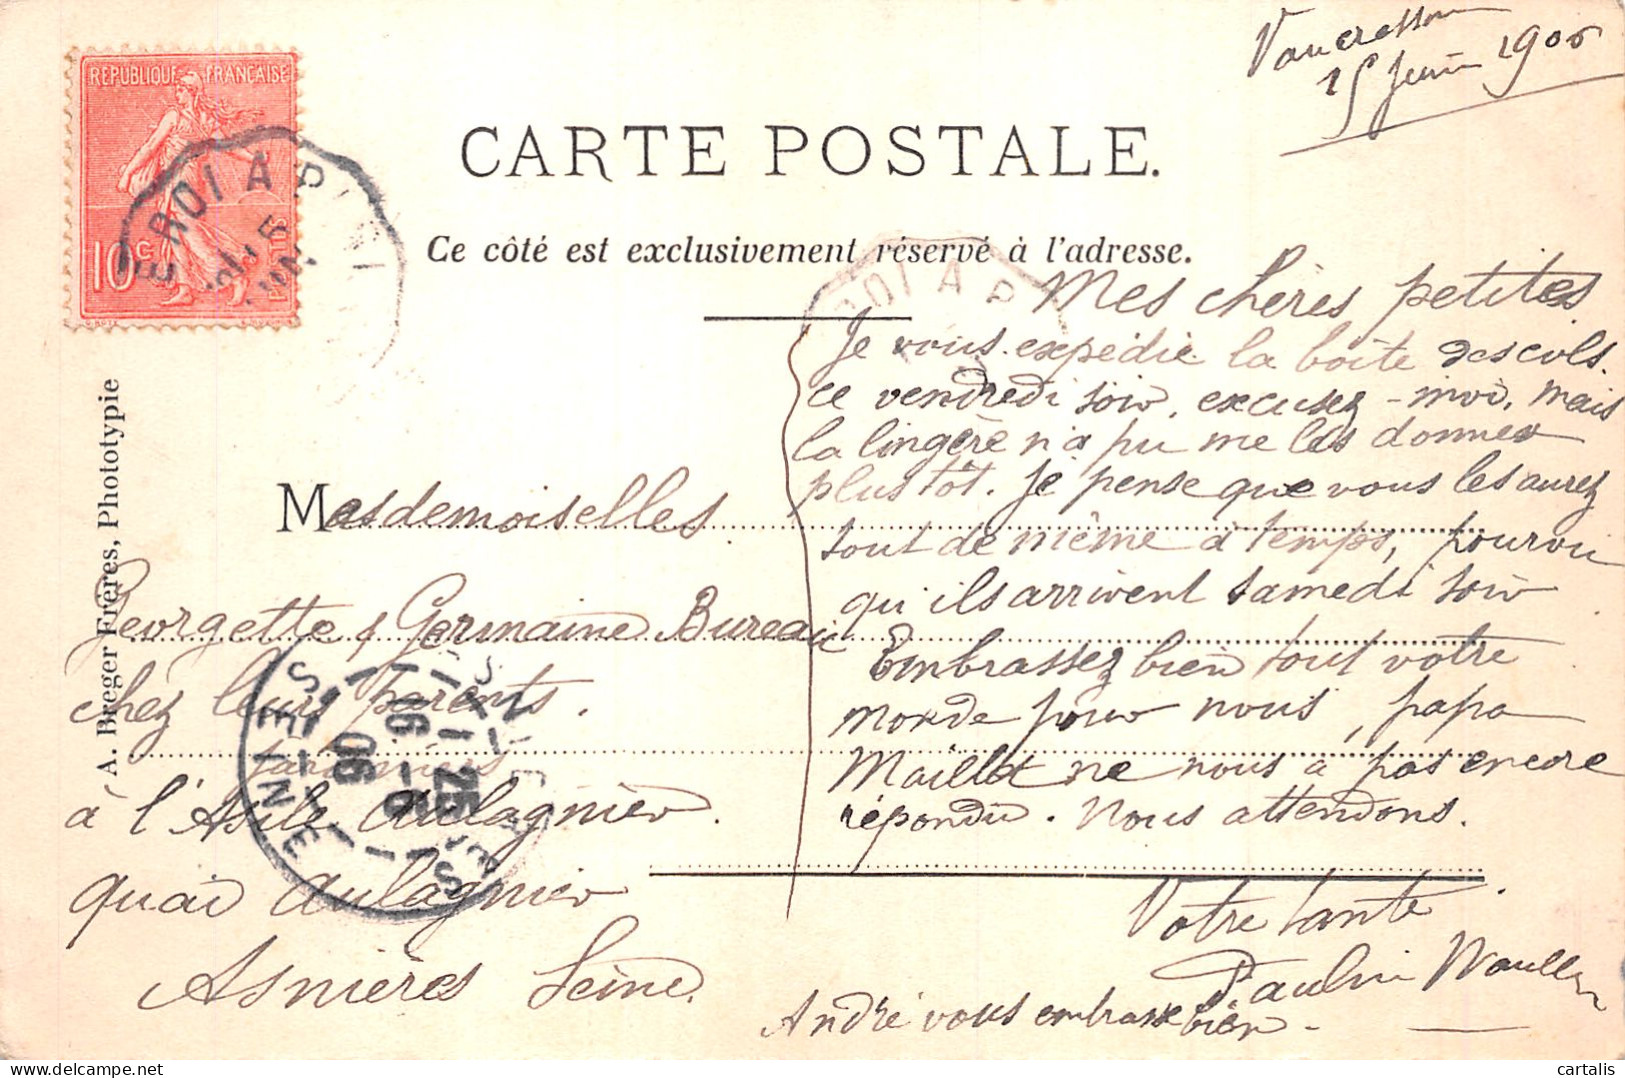 Vaucresson
15 Juin 1906
REPUBLIQUE FRANÇAISE
10 c
POSTES
E ROI A P
15
JUIN
CARTE POSTALE.
Ce côté est exclusivement réservé à l'adresse.
ROI A P
Mes chères petites
Je vous expédie la boîte des cols.
ce vendredi soir, excusez-moi, mais
la lingère n'a pu me les donner
plus tôt. Je pense que vous les aurez
tout de même à temps, pourvu
qu'ils arrivent samedi soir
Embrassez bien tout votre
monde pour nous, papa
Maillot ne nous a pas encore
répondu. Nous attendons.
Votre tante
André vous embrasse bien
Mesdemoiselles
Georgette & Germaine Bureau
chez leurs parents.
jardiniers
à l'Asile Aulagnier.
quai Aulagnier
Asnières Seine.
ASNIERES
SEINE
16-6
06
A. Breger Frères, Phototypie
cartalis